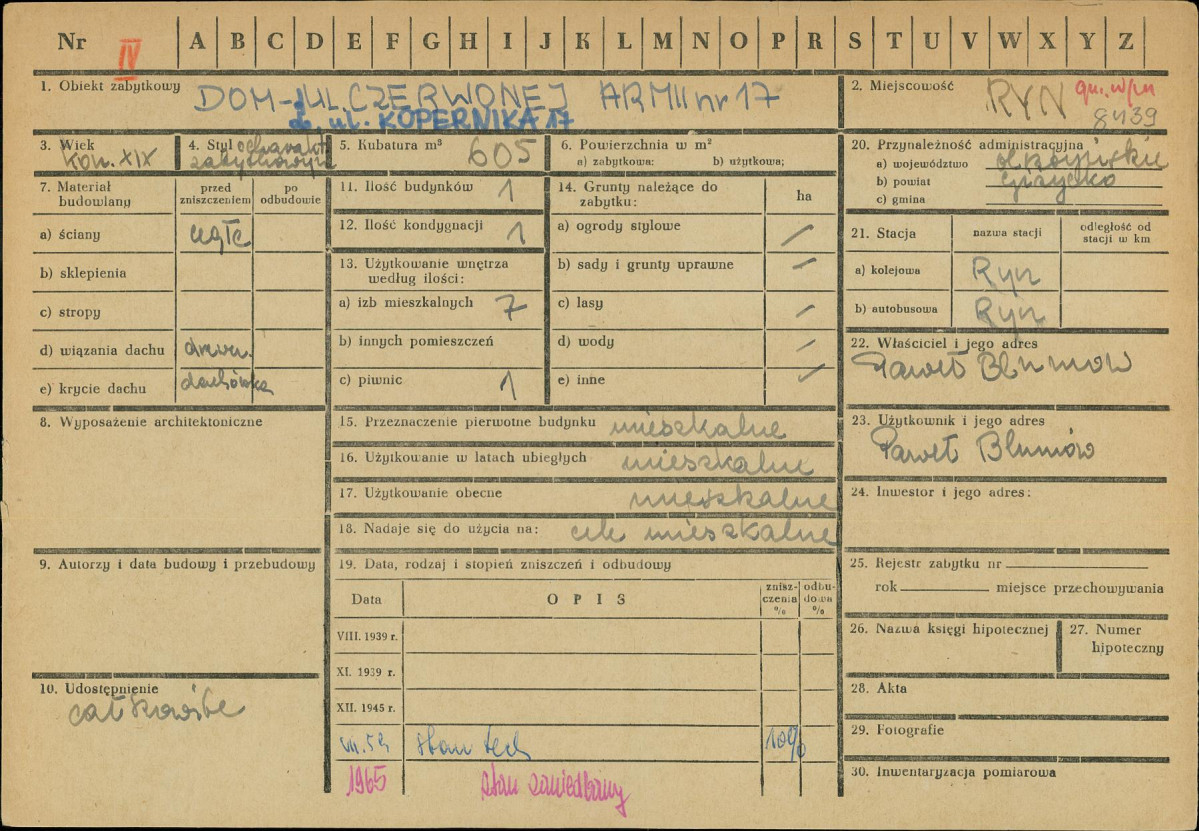 Nr IV A B C D E F G H I J K L M N O P R S T U V W X Y Z
1. Obiekt zabytkowy DOM - UL. CZERWONEJ ARMII nr 17
ul. KOPERNIKA 17
2. Miejscowość RYN
8439
3. Wiek kon. XIX
4. Styl
5. Kubatura m³ 605
6. Powierzchnia w m²
a) zabytkowa: b) użytkowa:
7. Materiał budowlany
przed zniszczeniem
po odbudowie
a) ściany cegła
b) sklepienia
c) stropy
d) wiązania dachu drewn.
e) krycie dachu dachówka
8. Wyposażenie architektoniczne
9. Autorzy i data budowy i przebudowy
10. Udostępnienie
całkowite
11. Ilość budynków 1
12. Ilość kondygnacji 1
13. Użytkowanie wnętrza
według ilości:
a) izb mieszkalnych 7
b) innych pomieszczeń
c) piwnic 1
14. Grunty należące do
zabytku: ha
a) ogrody stylowe /
b) sady i grunty uprawne /
c) lasy /
d) wody /
e) inne /
15. Przeznaczenie pierwotne budynku mieszkalne
16. Użytkowanie w latach ubiegłych mieszkalne
17. Użytkowanie obecne mieszkalne
18. Nadaje się do użycia na: cele mieszkalne
19. Data, rodzaj i stopień zniszczeń i odbudowy
Data OPIS znisz-czenia % odbu-dowa %
VIII. 1939 r.
XI. 1939 r.
XII. 1945 r.
stan tech 10%
1965 stan zaniedbany
20. Przynależność administracyjna
a) województwo olsztyńskie
b) powiat Giżycko
c) gmina
21. Stacja nazwa stacji odległość od stacji w km
a) kolejowa Ryn
b) autobusowa Ryn
22. Właściciel i jego adres
Paweł
23. Użytkownik i jego adres
Paweł
24. Inwestor i jego adres:
25. Rejestr zabytku nr
rok miejsce przechowywania
26. Nazwa księgi hipotecznej
27. Numer hipoteczny
28. Akta
29. Fotografie
30. Inwentaryzacja pomiarowa